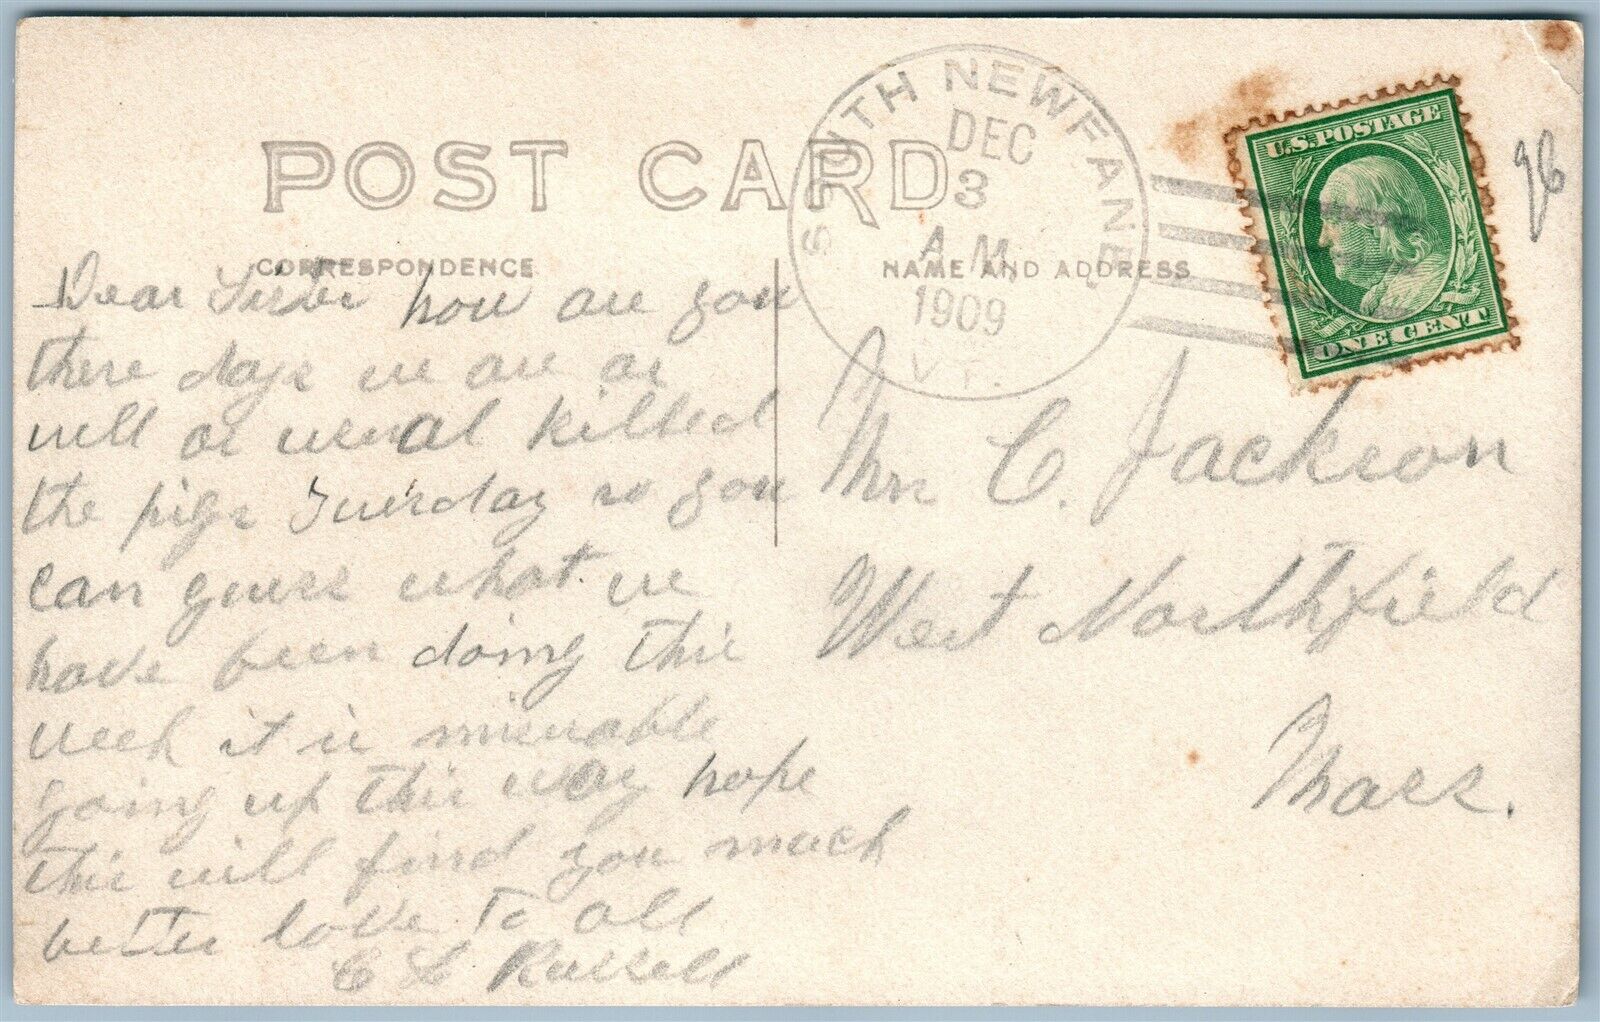 POST CARD
CORRESPONDENCE
NAME AND ADDRESS
SOUTH NEWFANE,
DEC
3
A.M.
1909
VT.
U.S. POSTAGE
ONE CENT
Dear Sister how are you
these days we are as
well as usual killed
the pigs Tuesday so you
can guess what we
have been doing this
week it is miserable
going up this way hope
this will find you much
better love to all
C L Russell
Mrs C. Jackson
West Northfield
Mass.